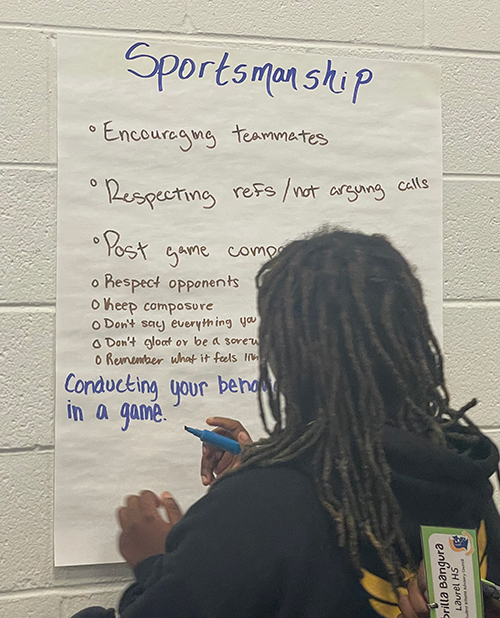 Sportsmanship
Encouraging teammates
Respecting refs/not arguing calls
Post game
Respect opponents
Keep composure
Don't say everything you
Don't gloat or be a
Remember what it feels
Conducting your
in a game.
Bangura
Laurel HS